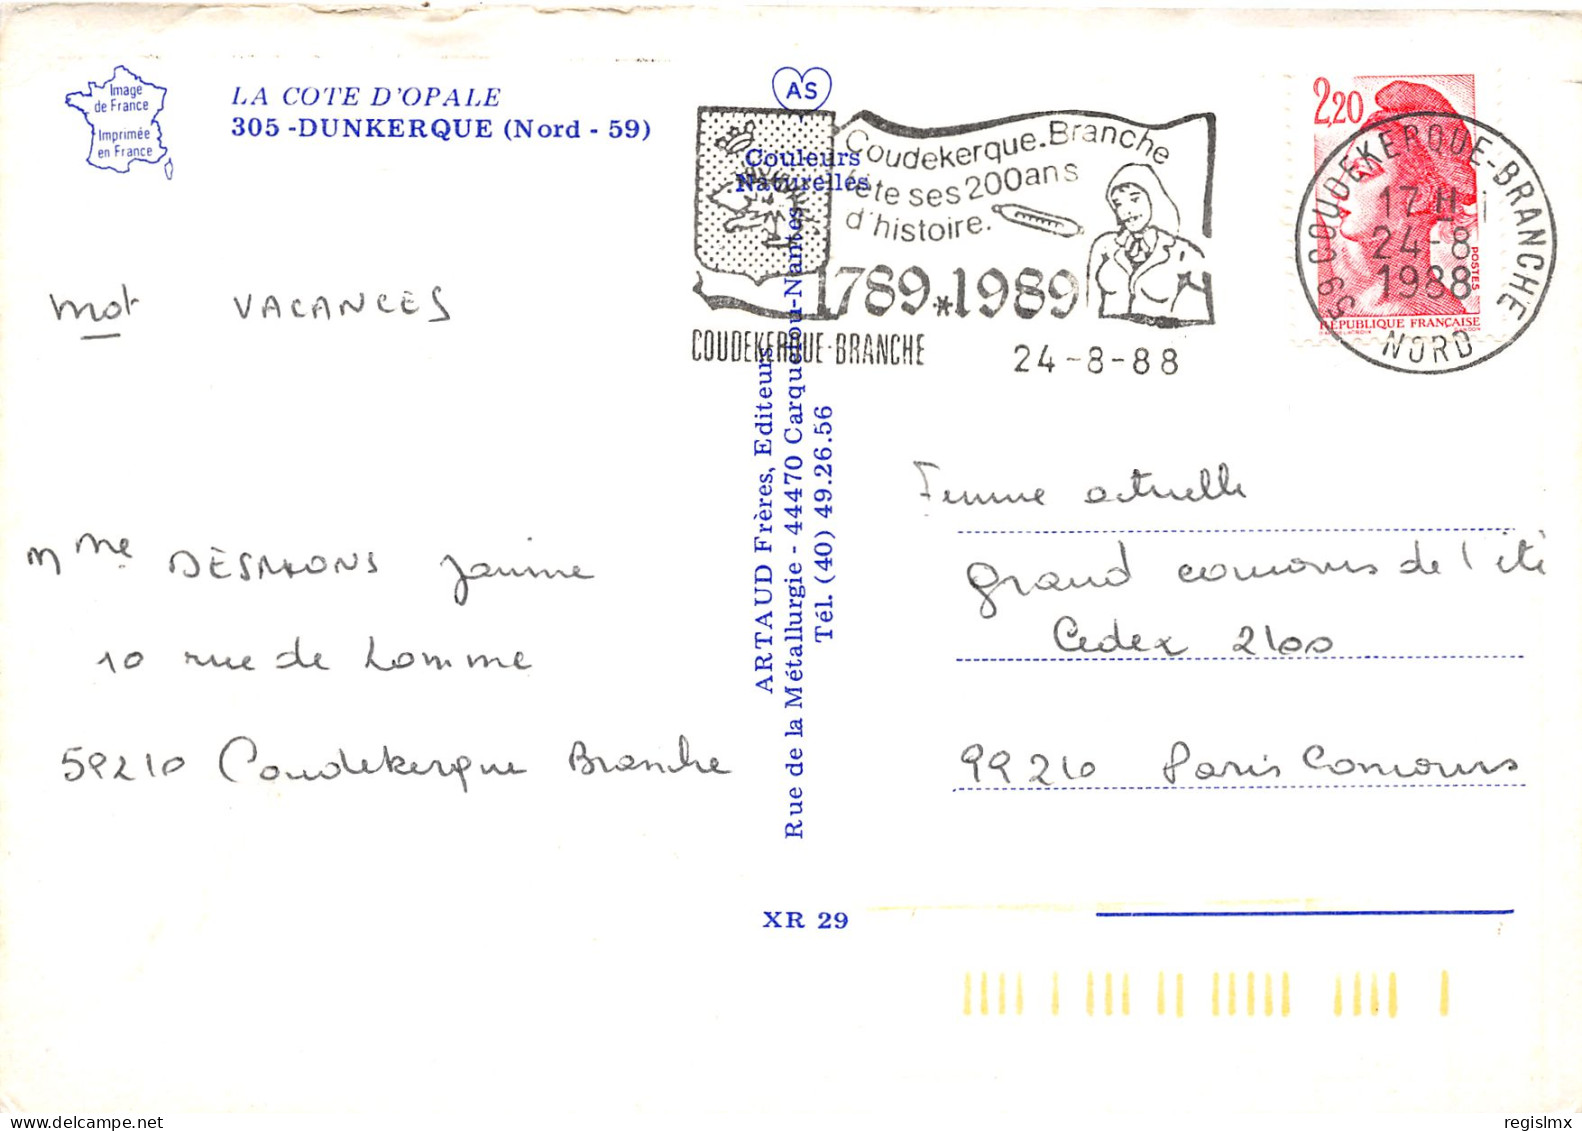 Image
de France
Imprimée
en France
LA COTE D'OPALE
305 -DUNKERQUE (Nord - 59)
AS
Couleurs
Naturelles
Coudekerque.Branche
fête ses 200ans
d'histoire.
1789*1989
COUDEKERQUE-BRANCHE
24-8-88
2,20
POSTES
RÉPUBLIQUE FRANÇAISE
59 COUDEKERQUE-BRANCHE
17H
24-8
1988
NORD
mot VACANCES
Mme DESMONS Janine
10 rue de Lomme
59210 Coudekerque Branche
ARTAUD Frères, Editeurs
Rue de la Métallurgie - 44470 Carquefou-Nantes
Tél. (40) 49.26.56
Femme actuelle
grand concours de l'été
Cedex 2100
99210 Paris Concours
XR 29
regislmx